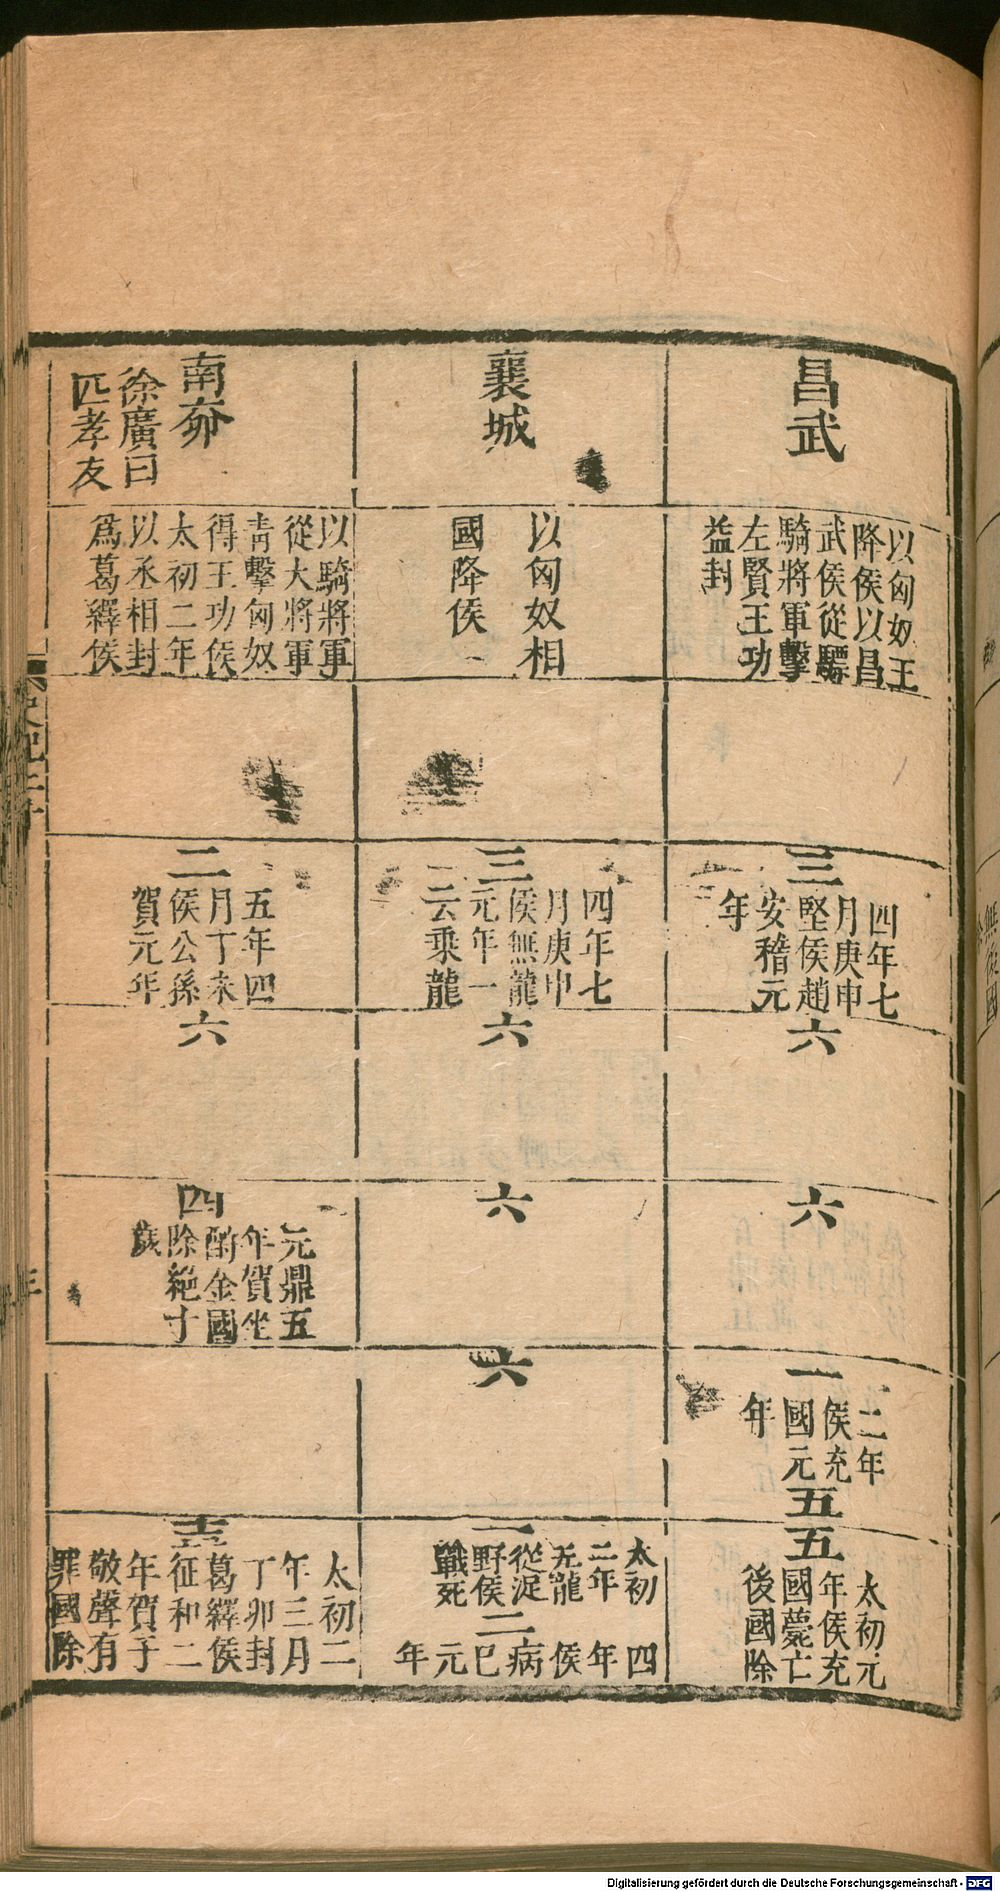 昌武
以匈奴王
降侯以昌
武侯從驃
騎將軍擊
左賢王功
益封
三
四年七
月庚申
堅侯趙
安稽元
年
六
六
一
二年
侯充
國元
年
五
五
太初元
年侯充
國薨亡
後國除
襄城
以匈奴相
國降侯
三
四年七
月庚申
侯無龍
元年一
云乘龍
六
六
六
一
太初
二年
无龍
從浞
野侯
戰死
二
四年侯病巳元年
南奅
徐廣曰
匹孝友
以騎將軍
從大將軍
青擊匈奴
得王功侯
太初二年
以丞相封
爲葛繹侯
二
五年四
月丁未
侯公孫
賀元年
六
四
元鼎五
年賀坐
酎金國
除絕寸
歲
十三
太初二
年三月
丁卯封
葛繹侯
征和二
年賀子
敬聲有
罪國除
史記二十
Digitalisierung gefördert durch die Deutsche Forschungsgemeinschaft - DFG